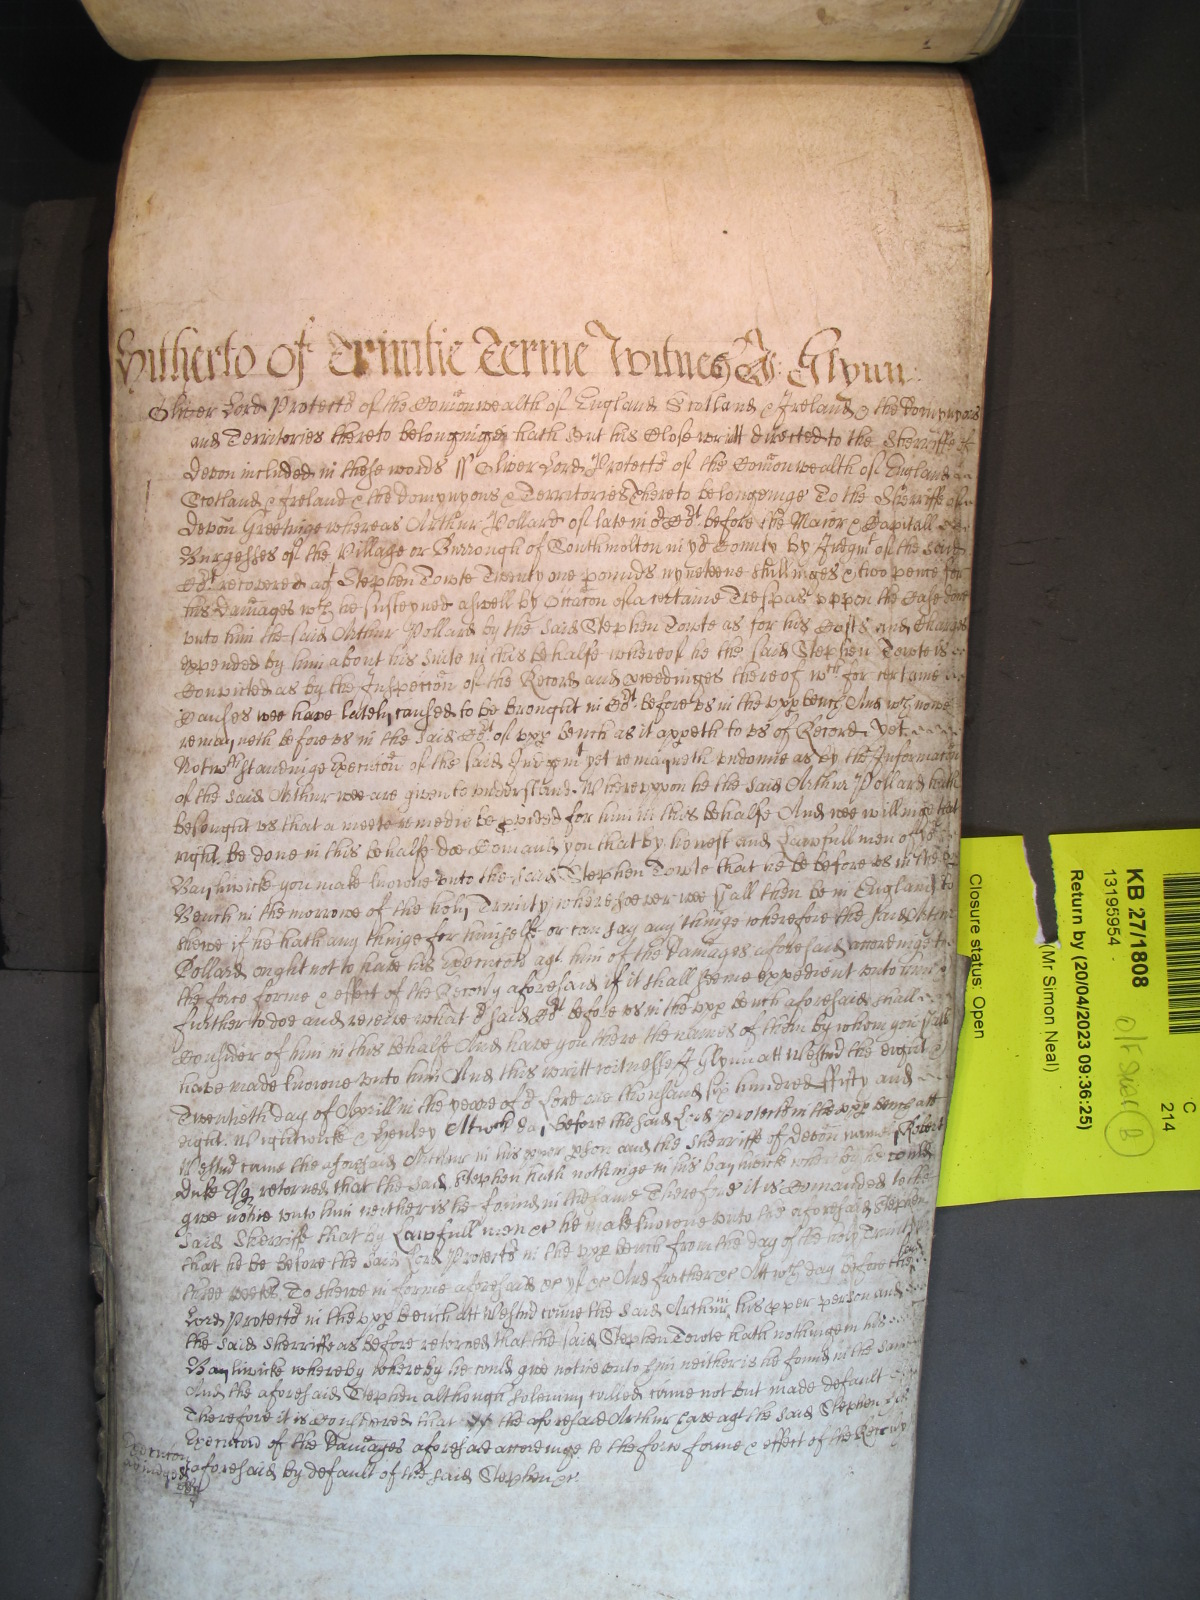 Hitherto of Trinitie Terme Witnes J: Glynn
Oliver Lord Protector of the Comonwealth of England Scotland & Ireland & the Domynyons
and Territories thereto belonginge hath sent his Close writt directed to the Sherriffe of
Devon included in these words ss Oliver Lord Protector of the Comonwealth of England
Scotland & Ireland & the Domynyons & Territories thereto belonginge To the Sherriffe of
Devon Greetinge whereas Arthur Pollard of late in Cort before the Maior & Capitall
Burgesses of the Village or Burrough of Southmolton in yor County by Judgmt of the said
Cort recovered agt Stephen Towte Twenty one pounds nyneteene shillinges & two pence for
his Damages wch he susteyned aswell by Occacon of a certaine Trespas uppon the Case done
unto him the said Arthur Pollard by the said Stephen Towte as for his Costs and Charges
expended by him about his suite in this behalfe whereof he the said Stephen Towte is
Convicted as by the Inspeccon of the Record and pceedinges thereof wch for certaine
Causes wee have lately caused to be brought in Cort before us in the upp bench And wch nowe
remayneth before us in the said Cort of upp bench as it appeth to us of Record Yet
Notwthstandinge Execucon of the said Judgmt yet remayneth undonne as by the Informacon
of the said Arthur wee are given to understand Whereuppon he the said Arthur Pollard hath
besought us that a meete remedie be pvided for him in this behalfe And wee willinge that
right be done in this behalfe doe Comand you that by honest and Lawfull men of yor
Bayliwicke you make knowne unto the said Stephen Towte that he be before us in the upp
Bench in the morrowe of the holy Trinity wheresoever wee shall then be in England to
shewe if he hath any thinge for himself or can say any thinge wherefore the said Arthur
Pollard ought not to have his Execucon agt him of the Damages aforesaid accordinge to
the force forme & effect of the Recovry aforesaid if it shall seeme expedient unto him &
further to doe and receive what or said Cort before us in the upp bench aforesaid shall
Consider of him in this behalf And have you there the names of them by whom you shall
have made knowne unto him And this writt witnesse J Glynn att Westmr the eight &
Twentieth day of Aprill in the yeare of or Lord one thousand six hundred fifty and
eight. Wightwicke & Henley Att wch day before the said Lord Protector in the upp bench att
Westmr came the aforesaid Arthur in his pper pson and the Sherriffe of Devon namely Robert
Duke Esq returned that the said Stephen hath nothinge in his bayliwicke whereby he could
give notice unto him neither is he found in the same Therefore it is Comanded to the
said Sherriffe that by Lawfull men &c he make knowne unto the aforesaid Stephen
that he be before the said Lord Protector in the upp bench from the day of the holy Trinity
three weekes To shewe in forme aforesaid &c yf &c And further &c Att wch day before the said
Lord Protector in the upp bench att Westmr came the said Arthur in his pper person and
the said Sherriffe as before returned that the said Stephen Towte hath nothinge in his
Bayliwicke whereby whereby he could give notice unto him neither is he found in the same
And the aforesaid Stephen although solemnly called came not but made default
Therefore it is considered that the aforesaid Arthur have agt the said Stephen his
Execucon of the Damages aforesaid accordinge to the force forme & effect of the Recovry
aforesaid by default of the said Stephen &c
Execucon
adiudged
KB 27/1808
13195954
Return by (20/04/2023 09:36:25)
(Mr Simon Neal)
Closure status: Open
C
214
B